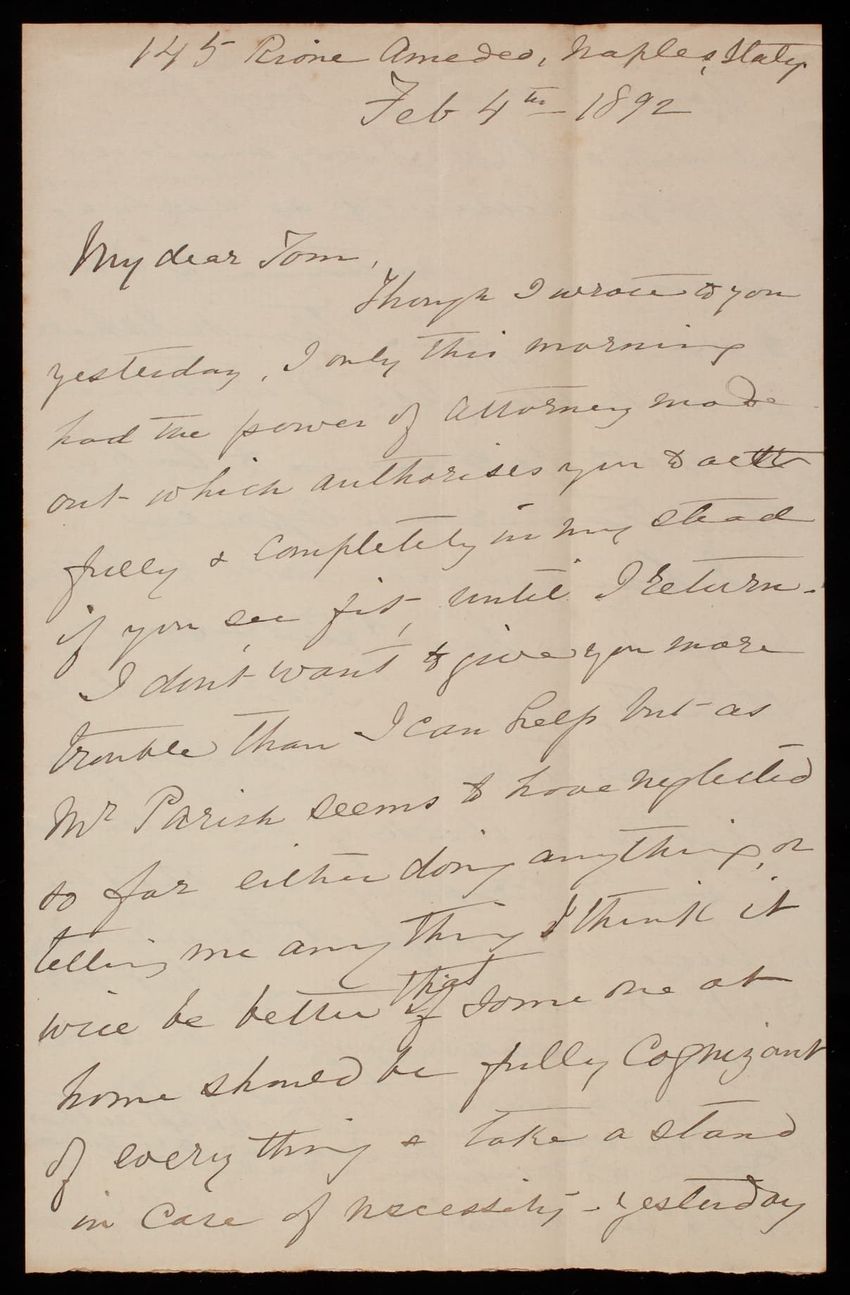 145 Rione Amedeo, Naples, Italy
Feb 4th - 1892
My dear Tom,
Though I wrote to you
yesterday, I only this morning
had the power of attorney made
out which authorises you to act
fully & completely in my stead
if you see fit, until I return.
I don't want to give you more
trouble than I can help but as
Mr Parish seems to have neglected
so far either doing anything, or
telling me anything I think it
will be better that some one at
home should be fully cognizant
of everything & take a stand
in case of necessity - yesterday